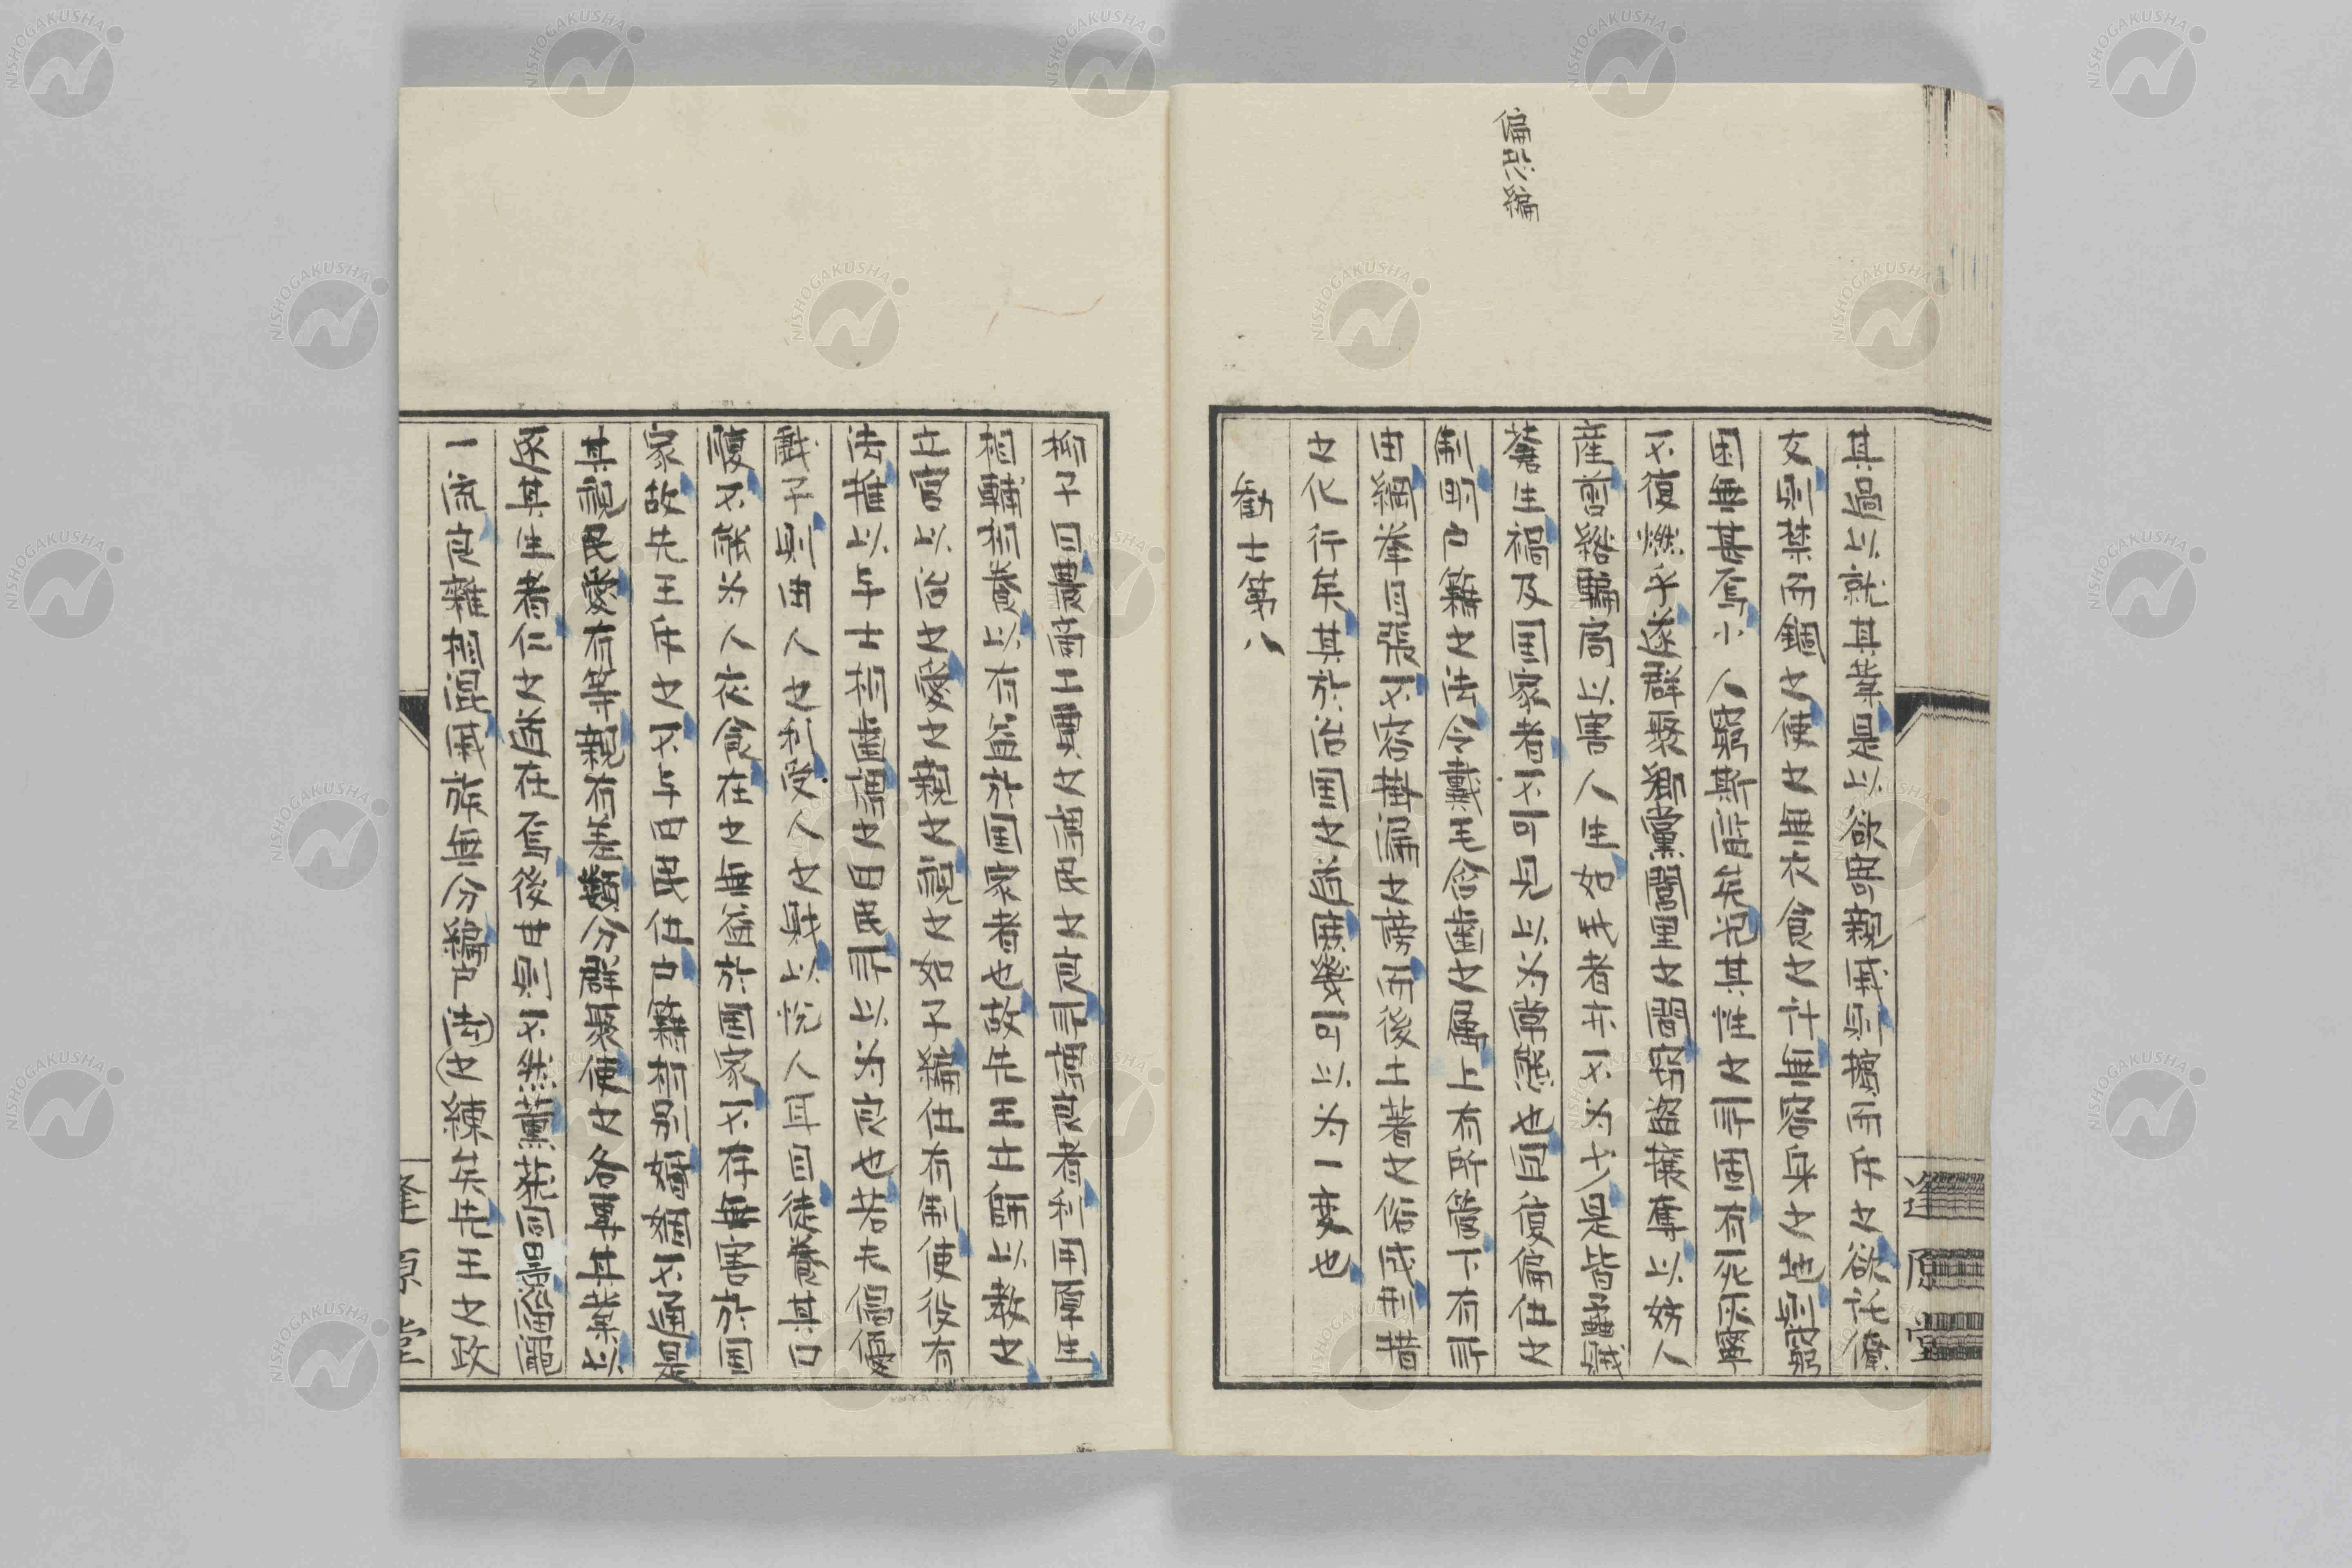 偏形編
其過以就其業是以欲再親戚則擯而斥之欲託
友則禁而錮之使之無衣食之計無容身之地則窮
困無甚焉小人窮斯濫矣況其誰之所固有死灰寧
不復燃乎遂群聚鄉黨閭里之間竊盜攘奪以妨人
産剪綹騙局以害人生如者亦不为少是皆蠹賊
蒼生禍及国家者不可見以为常態也且復偏伍之
制明戶籍之法令戴毛含齒之屬上有所管下有所
由綱挙目張不容偏之而後土著之俗成刑措
之化行矣其於治国之道庶幾可以为一变也
勧士第八
逢原堂
柳子曰農商工賈之謂民之良所謂良者利用厚生
相輔相養以有益於国家者也故先王以教之
立官以治之愛之親之視之如子編伍有制使役有
法推以与士相齒謂之曰民所以为良也若夫倡優
戲子則由人之利受人之財以悦人耳目徒養其口
腹不为人衣食在之無益於国家不存無害於国
家故先王斥之不与四民伍戶籍相別婚姻不通是
其視民愛有等親有差類分群聚使之各專其業以
遂其生者仁之道在焉後世則不然薰蕕同器淄澠
一流良雜相混戚族無分編戶法之練矣先王之政
逢原堂